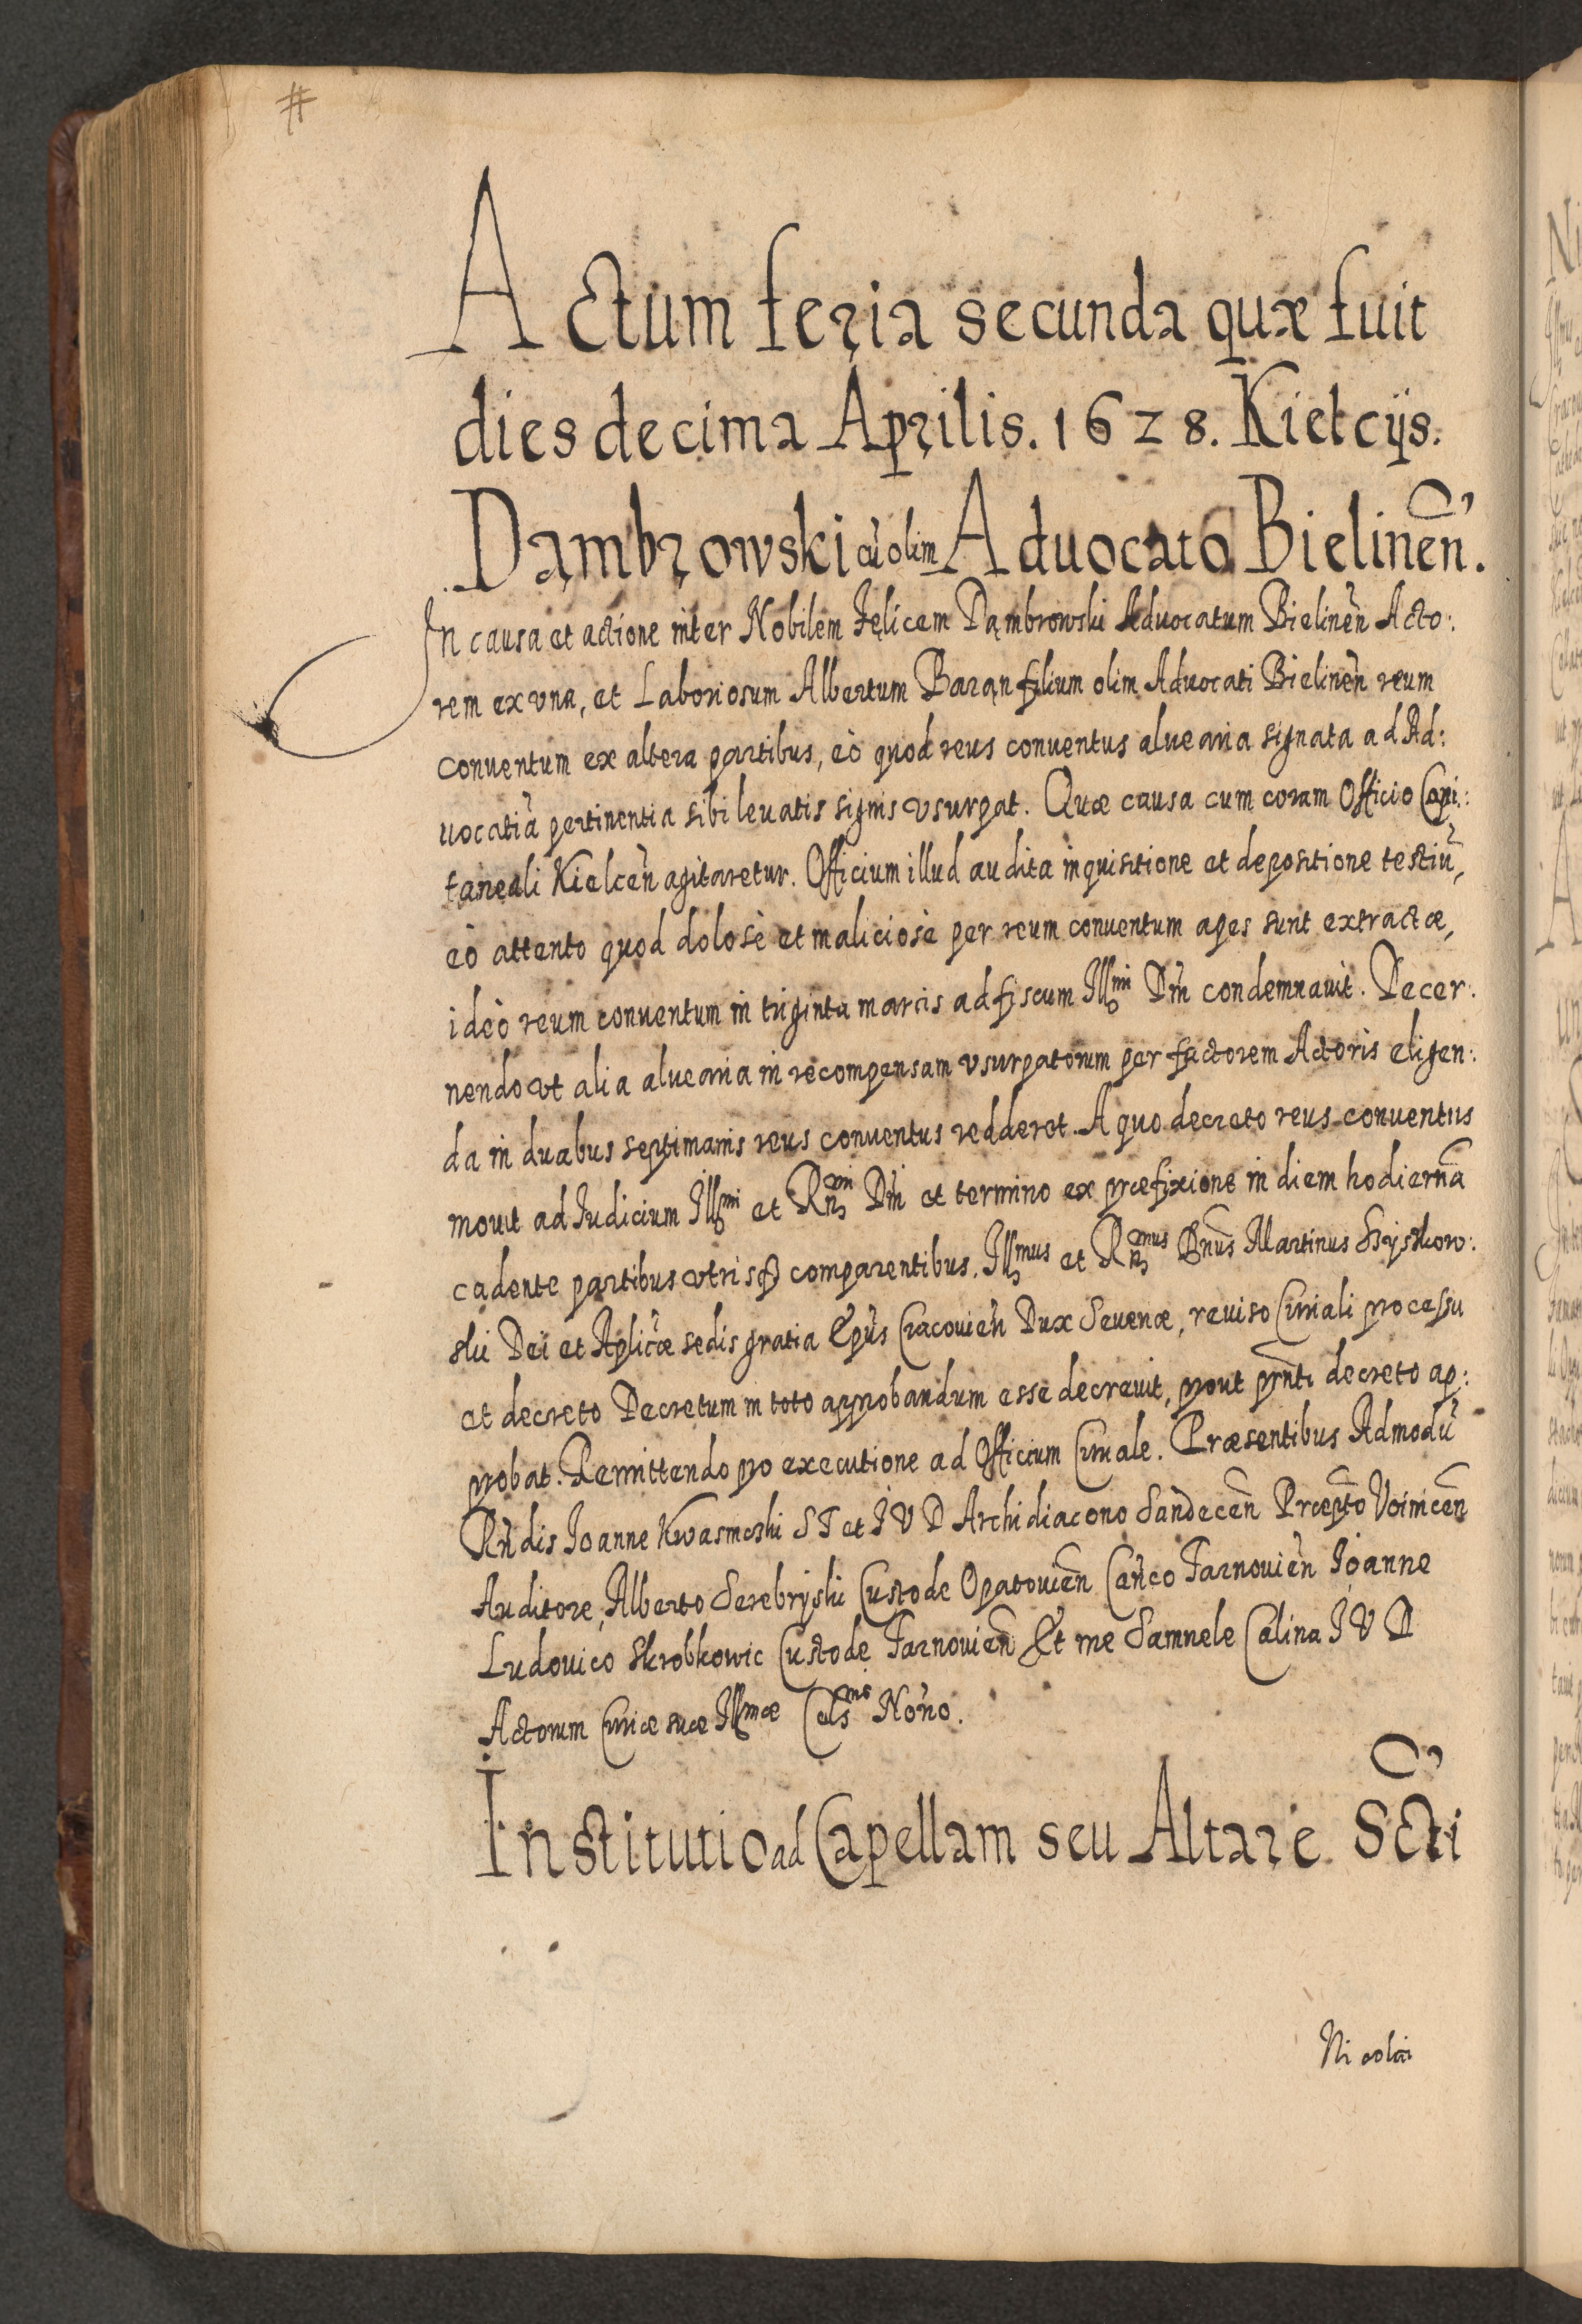 #
Actum feria secunda quæ fuit
dies decima Aprilis. 1628. Kielcijs.
Dąmbrowski cũ olim Aduocato Bielineñ.
In causa et actione inter Nobilem Felicem Dąmbrowski Aduocatum Bielineñ Acto:
rem ex vna, et Laboriosum Albertum Baran filium olim Aduocati Bielineñ reum
conuentum ex altera partibus, eò quod reus conuentus aluearia signata ad Ad:
uocatiã pertinentia sibi leuatis signis vsurpat. Quæ causa cum coram Officio Capi:
taneali Kielceñ agitaretur. Officium illud audita inquisitione et depositione testiũ,
eò attento quod dolosè et maliciosè per reum conuentum apes sunt extractæ,
ideò reum conuentum in triginta marcis ad fiscum Illmi Dni condemnauit. Decer:
nendo vt alia aluearia in recompensam vsurpatorum per factorem Actoris eligen:
da in duabus septimanis reus conuentus redderet. A quo decreto reus conuentus
mouit ad Iudicium Illmi et Rmi Dni et termino ex præfixione in diem hodiernã
cadente partibus vtrisq comparentibus. Illmus et Rmus Dnus Martinus Szyszkow:
ski Dei et Aplicæ sedis gratia Epus Cracouieñ Dux Seueriæ, reuiso Curiali processu
et decreto Decretum in toto approbandum esse decreuit, prout pñti decreto ap:
probat. Remittendo pro executione ad Officium Curiale. Præsentibus Admodũ
Rñdis Ioanne Kwasnicski S T et I V D Archidiacono Sandeceñ Præpto Voiniceñ
Auditore, Alberto Serebryski Custode Opatouieñ Canco Tarnouieñ Ioanne
Ludouico Skrobkowic Custode Tarnouieñ Et me Samuele Calina I V D
Actorum Curiæ suæ Illmæ Celsnis Norio.
Institutio ad Capellam seu Altare Scti
Nicolai